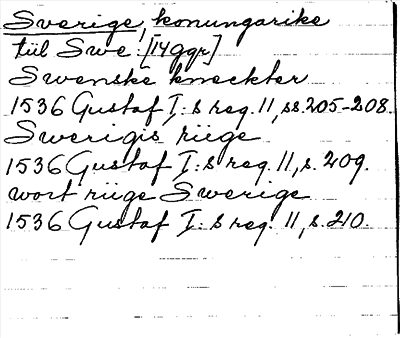 Sverige, konungarike
tiil Swe: [14 ggr]
Swenske kneckter
1536 Gustaf I:s reg. 11, ss. 205-208.
Swerigis riige
1536 Gustaf I:s reg. 11, s. 209.
wort riige Swerige
1536 Gustaf I:s reg. 11, s. 210.